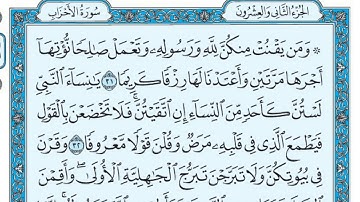 الجزء الثاني والعشرون
سورة الأحزاب
۞ وَمَن يَقْنُتْ مِنكُنَّ لِلَّهِ وَرَسُولِهِۦ وَتَعْمَلْ صَٰلِحًا نُّؤْتِهَآ
أَجْرَهَا مَرَّتَيْنِ وَأَعْتَدْنَا لَهَا رِزْقًا كَرِيمًا ٣١ يَٰنِسَآءَ ٱلنَّبِيِّ
لَسْتُنَّ كَأَحَدٍ مِّنَ ٱلنِّسَآءِ إِنِ ٱتَّقَيْتُنَّ ۚ فَلَا تَخْضَعْنَ بِٱلْقَوْلِ
فَيَطْمَعَ ٱلَّذِى فِى قَلْبِهِۦ مَرَضٌ وَقُلْنَ قَوْلًا مَّعْرُوفًا ٣٢ وَقَرْنَ
فِى بُيُوتِكُنَّ وَلَا تَبَرَّجْنَ تَبَرُّجَ ٱلْجَٰهِلِيَّةِ ٱلْأُولَىٰ ۖ وَأَقِمْنَ